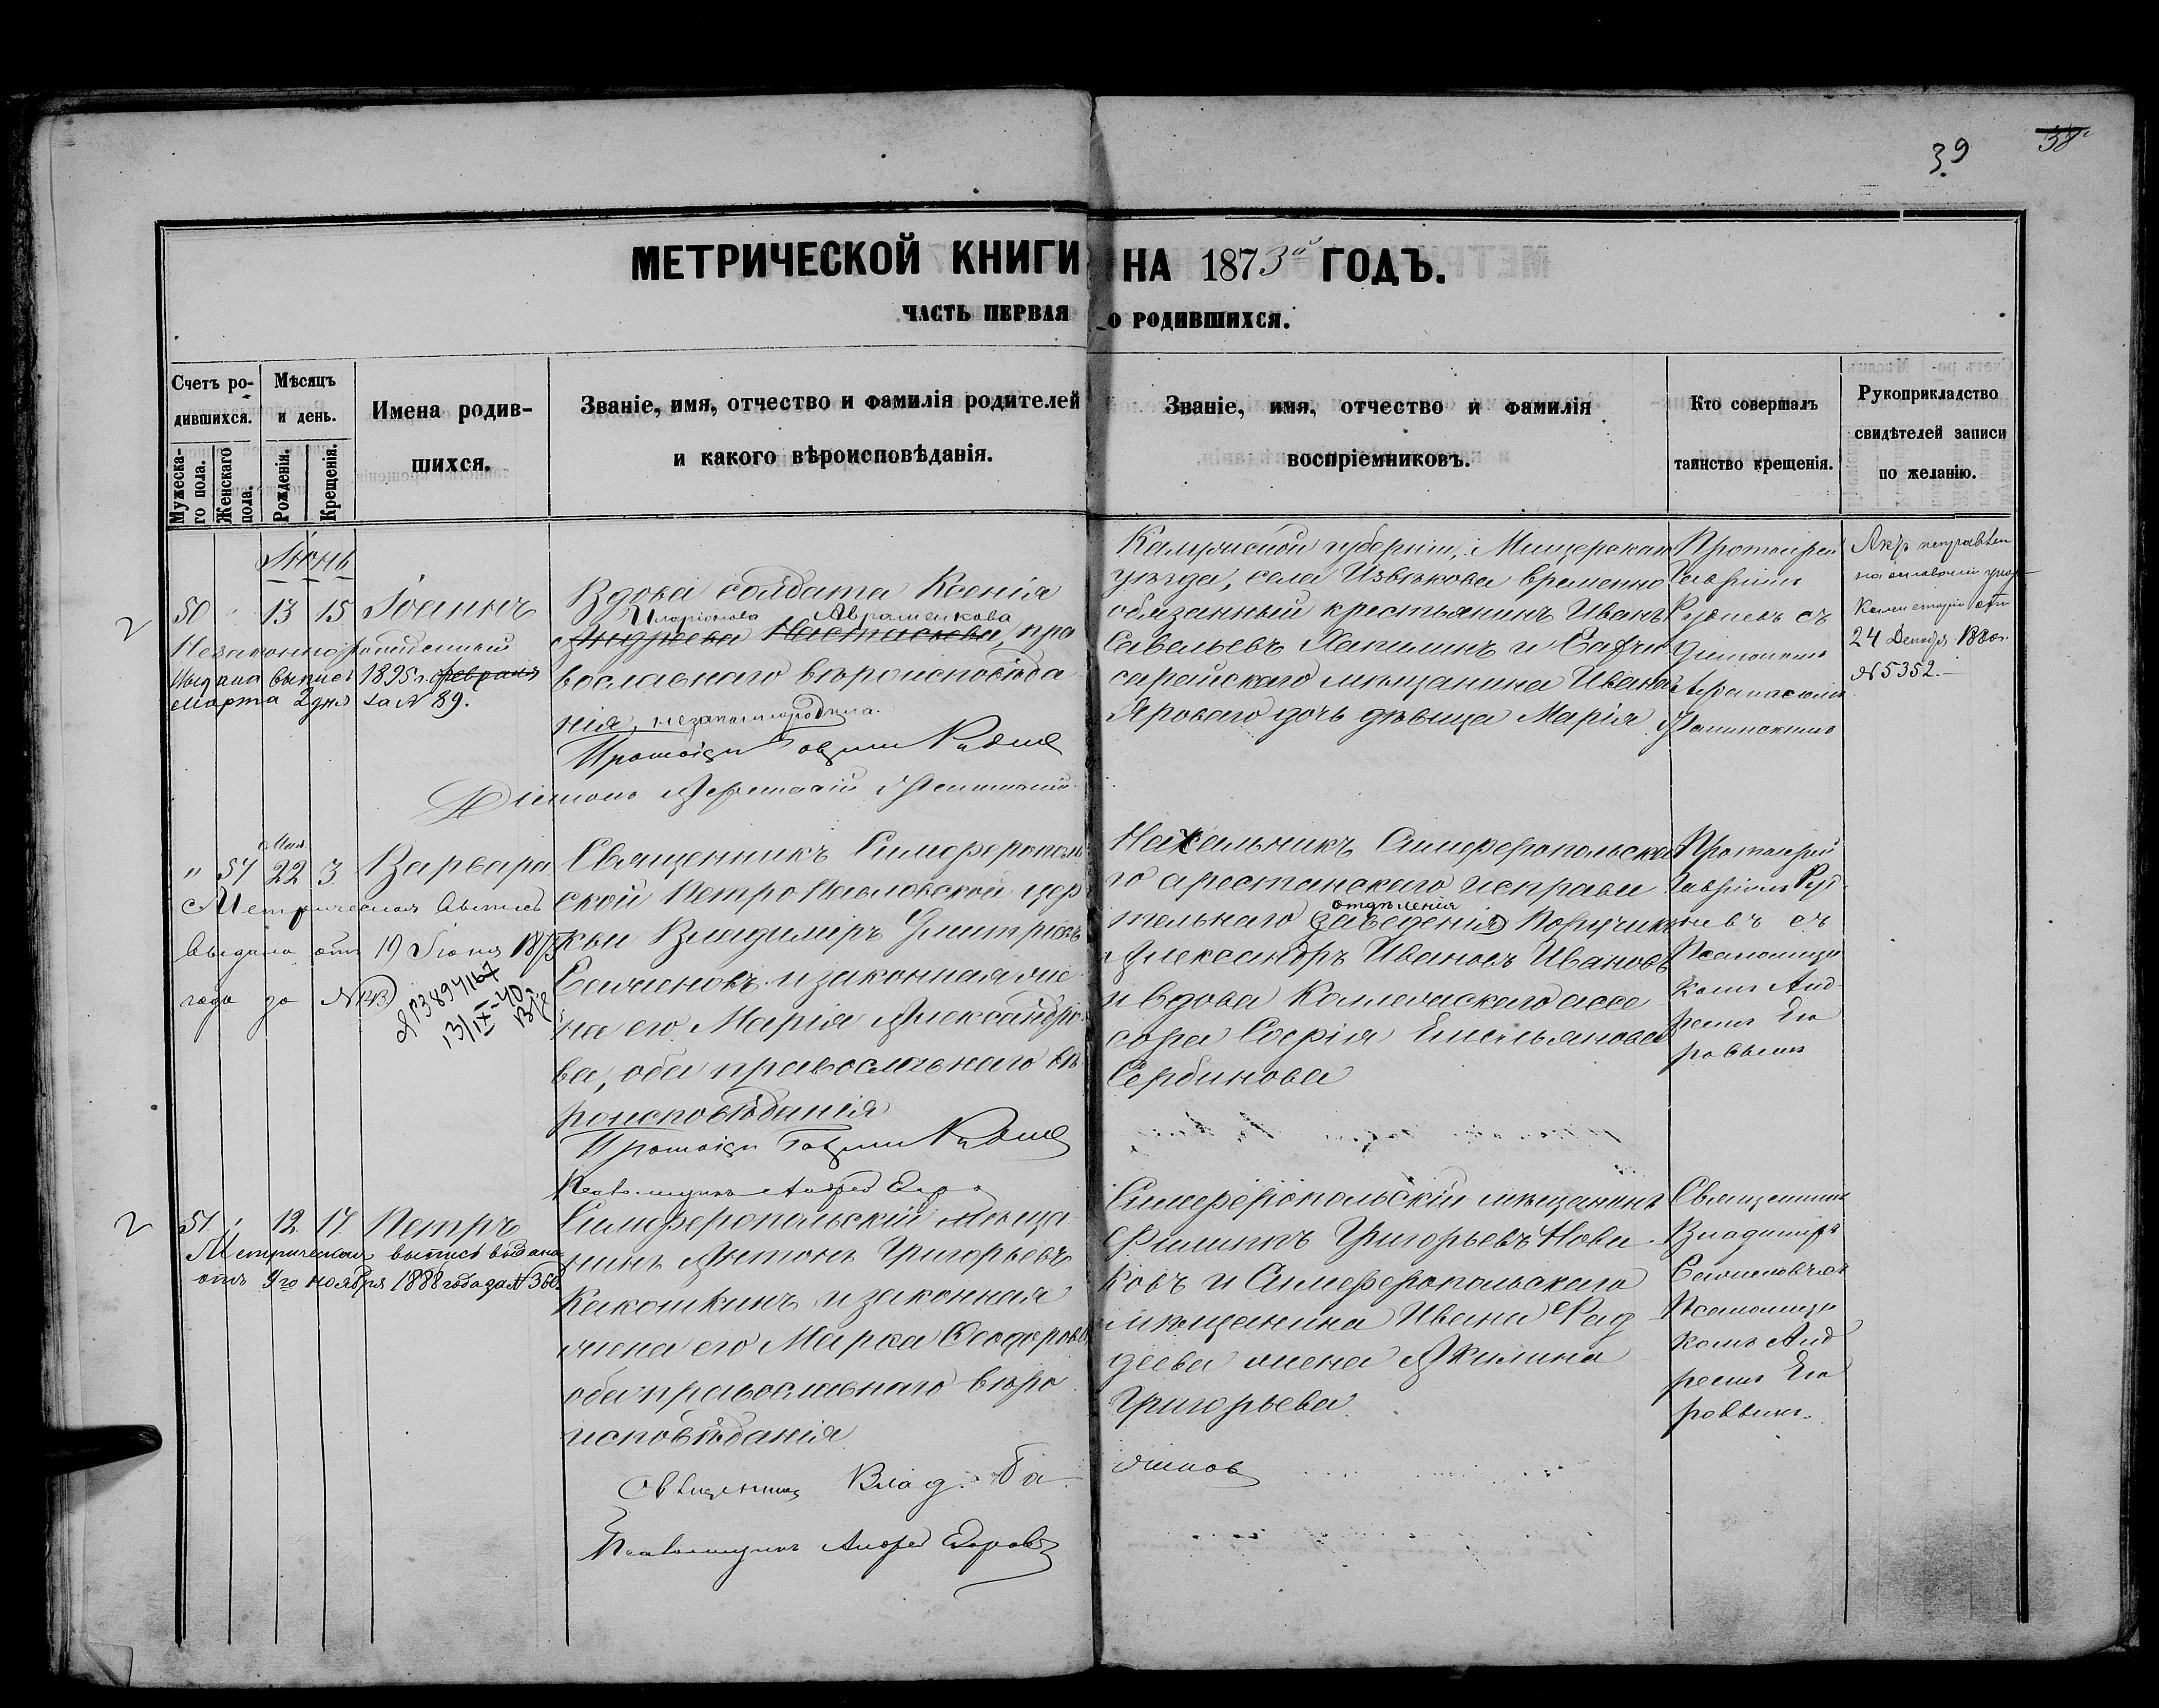 39
38
МЕТРИЧЕСКОЙ КНИГИ НА 1873й ГОДЪ.
ЧАСТЬ ПЕРВАЯ О РОДИВШИХСЯ.
Счетъ ро-
дившихся.
Мужеска-
го пола.
Женскаго
пола.
Мѣсяцъ
и день.
Рожденія.
Крещенія.
Имена родив-
шихся.
Званіе, имя, отчество и фамилія родителей
и какого вѣроисповѣданія.
Званіе, имя, отчество и фамилія
воспріемниковъ.
Кто совершалъ
таинство крещенія.
Рукоприкладство
свидѣтелей записи
по желанію.
Іюнь
2
50 " 13 15 Іоаннъ
Незаконнорожденный
выдана выпись 1895 г. февраля
марта 2 дня за № 89.
Вдова солдата Ксенія
Иларіонова Авраменкова
Андреева, пра
вославнаго вѣроисповѣда
нія, незаконнородила.
Протоіерей Гавріилъ Руднев
Діаконъ Афанасій
Калужской губерніи, Мищерскаго
уѣзда, села Извѣкова временно
обязанный крестьянинъ Иванъ
Савельевъ Хапилинъ и Бахчи
сарайскаго мѣщанина Ивана
Яроваго дочь дѣвица Марія
Протоіерей
Гавріилъ
Рудневъ съ
Діакономъ
Афанасіемъ
Актъ исправленъ
на основаніи указа
Консисторіи отъ
24 Декабря 1880 г.
№ 5352.
Мая
" 57 22 3. Варвара
Метрическая выпись
выдана отъ 19 Іюня 1873
года за № 143
13/IX-40
Священникъ Симферополь
ской Петропавловской цер
кви Владиміръ Дмитріевъ
Башановъ и законная же
на его Марія Александро
ва, оба православнаго вѣ
роисповѣданія
Протоіерей Гавріилъ Руднев
Псаломщикъ Андрей Егоро
Начальникъ Симферопольска
го арестанскаго исправи
тельнаго отдѣленія заведенія Поручикъ
Александръ Ивановъ Ивановъ
и вдова Коллежскаго ассе
сора Софія Емельянова
Сербинова
Протоіерей
Гавріилъ Руд
невъ съ
Псаломщи
комъ Анд
реемъ Его
ровымъ
2
51. " 12 17 Петръ
Метрическая выпись выдана
отъ 9го ноября 1888 года за № 360.
Симферопольскій мѣща
нинъ Антонъ Григорьевъ
Какошкинъ и законная
жена его Марѳа Ѳеодорова
оба православнаго вѣро
исповѣданія
Священникъ Влад. Ба
шанов
Псаломщикъ Андрей Егоровъ
Симферопольскій мѣщанинъ
Филиппъ Григорьевъ Нови
ковъ и Симферопольскаго
мѣщанина Ивана Фад
деева жена Акилина
Григорьева
Священникъ
Владиміръ
Башановъ съ
Псаломщи
комъ Анд
реемъ Его
ровымъ.